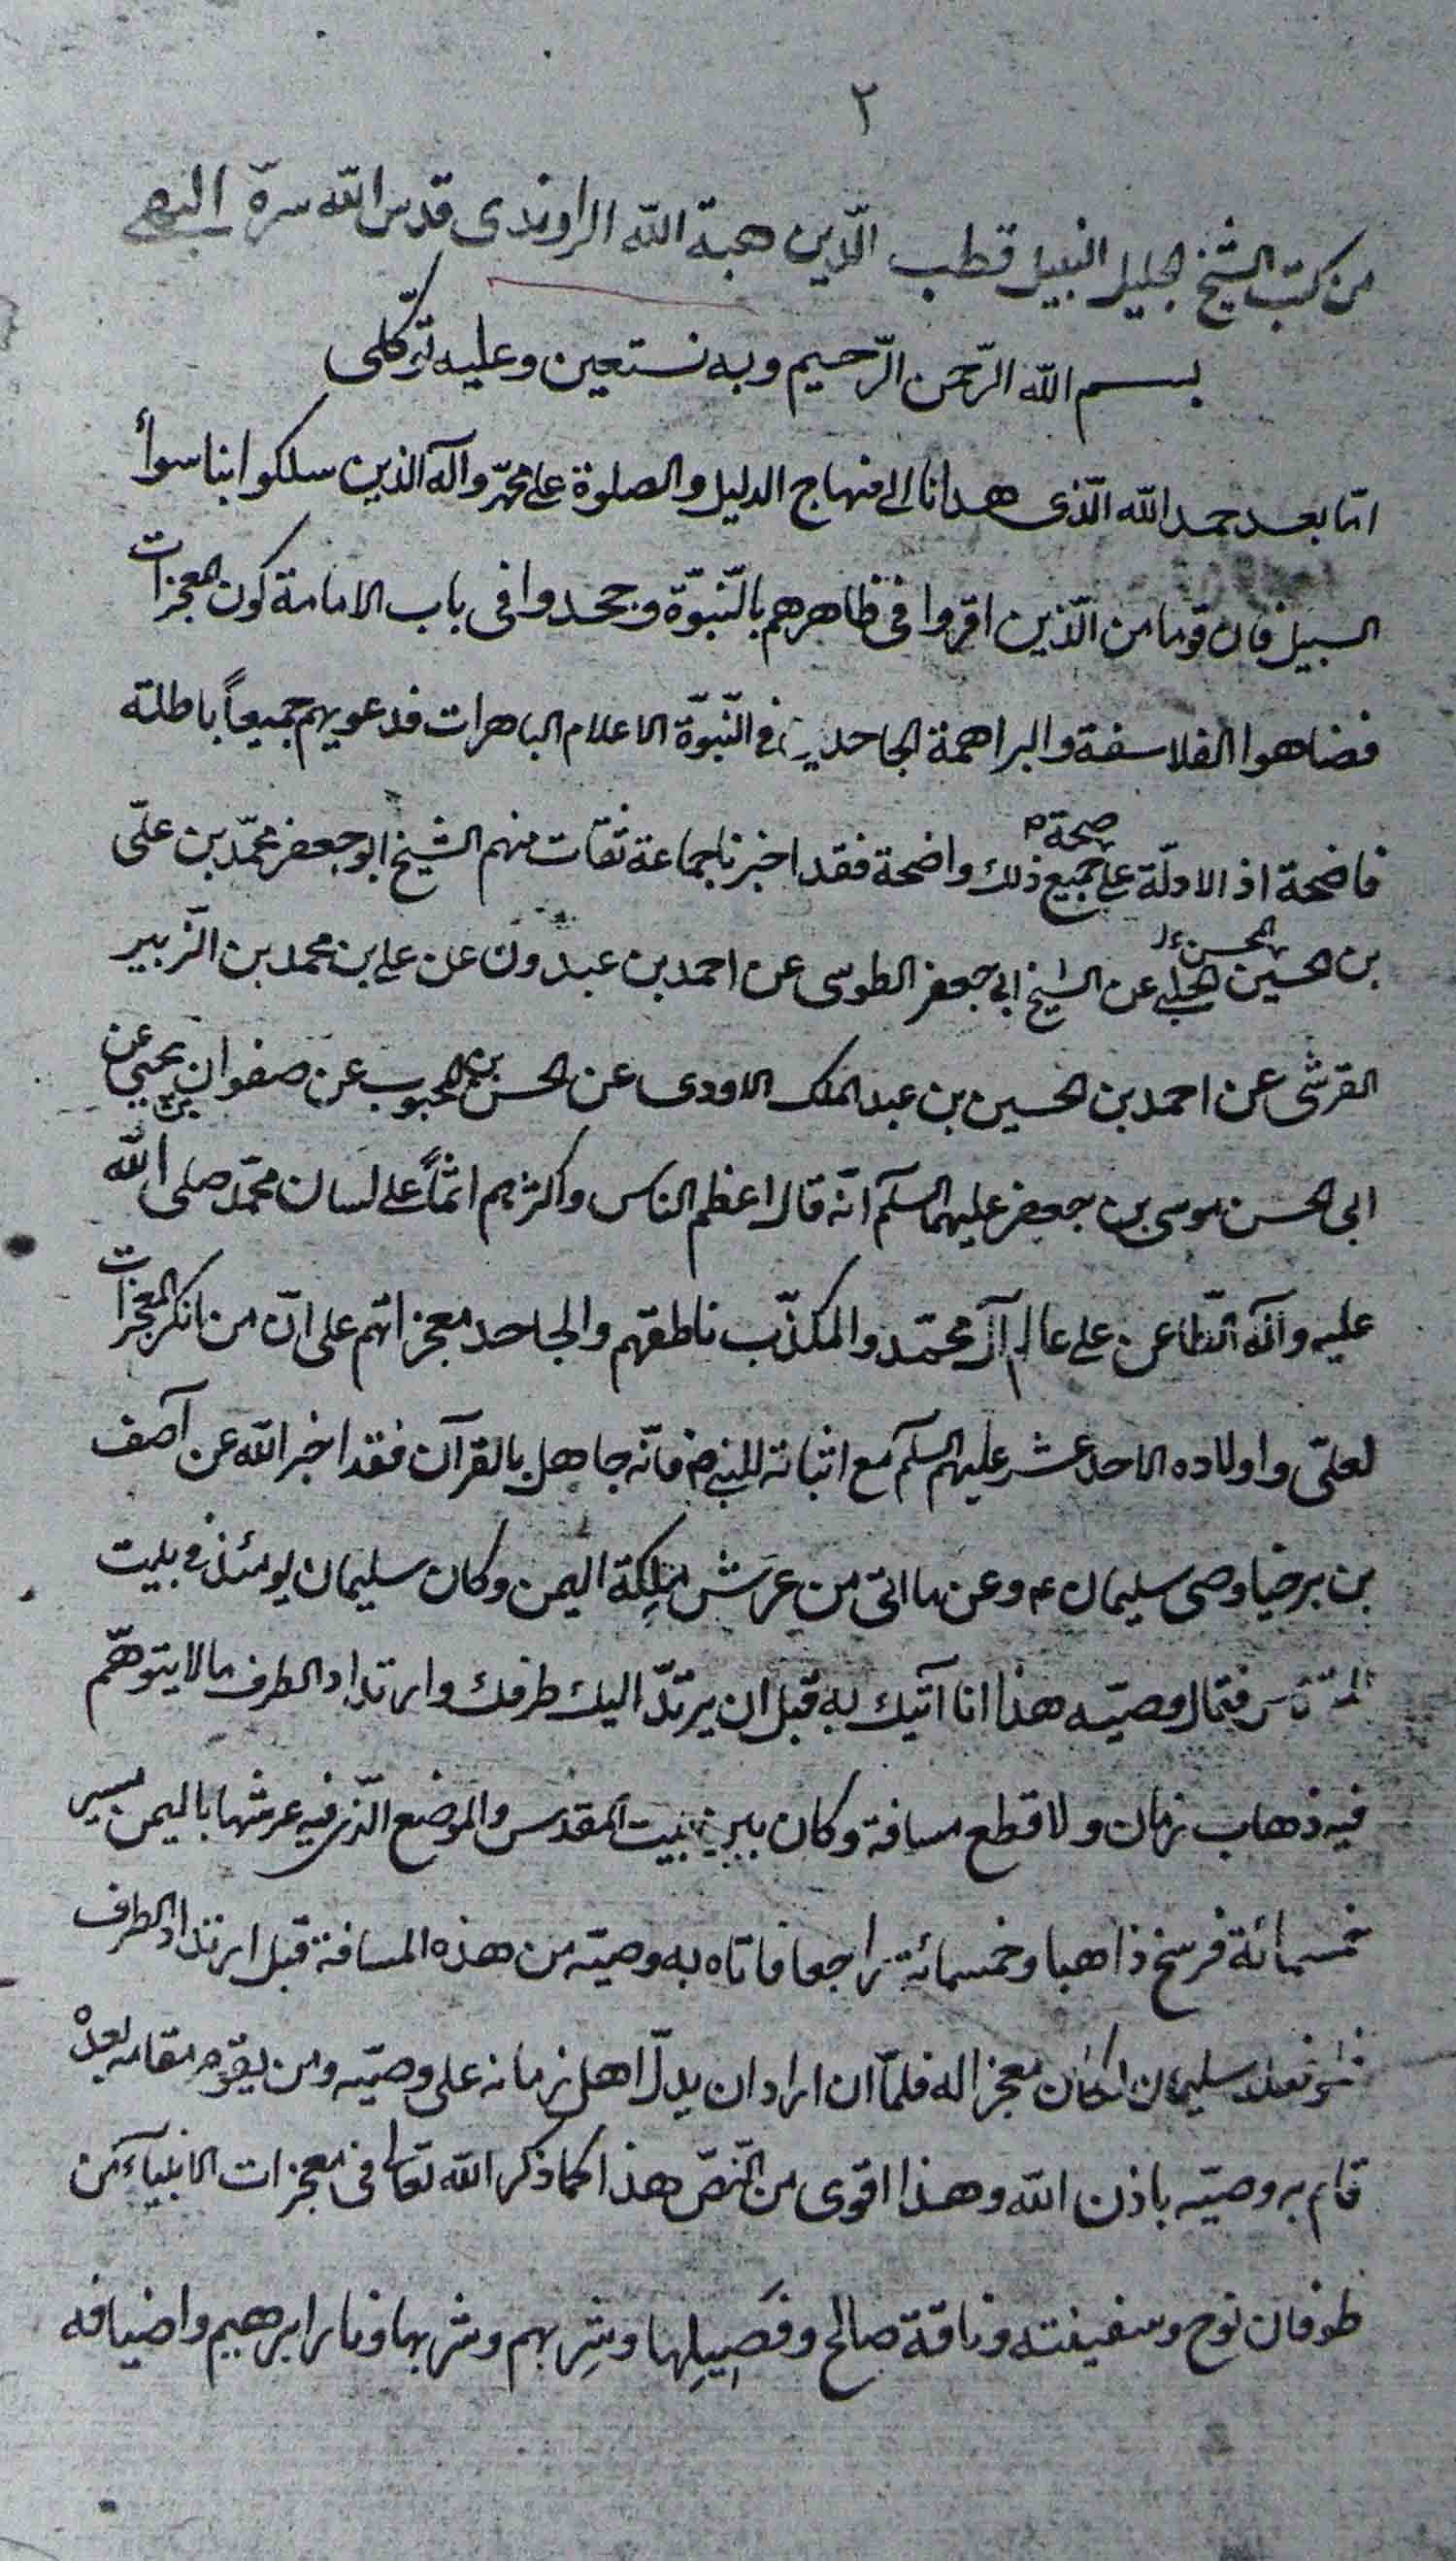 ٢
من كتب الشيخ الجليل النبيل قطب الدّين هبة الله الراوندى قدس الله سرّه البهى
بسم الله الرّحمن الرّحيم وبه نستعين وعليه توكّلى
امّا بعد حمد الله الّذى هدانا الى منهاج الدليل والصلوة على محمّد وآله الذين سلكوا بنا سواء
السبيل فان قوما من الّذين اقروا فى ظاهرهم بالنّبوّة وجحدوا فى باب الامامة كون المعجزات
فضاهوا الفلاسفة والبراهمة الجاحدين فى النّبوّة الاعلام الباهرات فدعويهم جميعاً باطلة
صحة م
فاضحة اذ الادلّة على جميع ذلك واضحة فقد اخبرنا جماعة ثقات منهم الشيخ ابو جعفر محمّد بن علّى
المحسن
بن الحسين الحلبى عن الشيخ ابى جعفر الطوسى عن احمد بن عبدون عن على بن محمد بن الزّبير
القرشى عن احمد بن الحسين بن عبد الملك الاودى عن الحسن بن المحبوب عن صفوان بن يحيى عن
ابى الحسن موسى بن جعفر عليهما السلم انّه قال اعظم الناس واكثرهم اثماً على لسان محمّد صلى الله
عليه وآله الطّاعن على عالم آل محمّد والمكذّب ناطقهم والجاحد معجزاتهم على انّ من انكر المعجزات
لعلّى واولاده الاحد عشر عليهم السلم مع اثباته للنبى ص فانّه جاهل بالقرآن فقد اخبر الله عن آصف
بن برخيا وصى سليمان ع وعن ما اتى من عَرش مَلِكة اليمن وكان سليمان يومئذ فى بيت
فقال وصيّه هذا انا آتيك به قبل ان يرتدّ اليك طرفك وارتداد الطرف ما لا يتوهّم
فيه ذهاب زمان ولا قطع مسافة وكان بين بيت المقدس والموضع الّذى فيه عرشها باليمن مسير
خمسمائة فرسخ ذاهبا وخمسمائة راجعا فاتاه به وصيّه من هذه المسافة قبل ارتداد الطرف
سليمان لكان معجزا له فلمّا ان اراد ان يدلّ اهل زمانه على وصيّه ومن يقوم مقامه بعده
قام به وصيّه باذن الله وهذا اقوى من النّصّ هذا كما ذكر الله تعالى فى معجزات الانبياء من
طوفان نوح وسفينته وناقة صالح وفَصِيلها وشِربهم وشربها ونار ابرهيم واضيافه